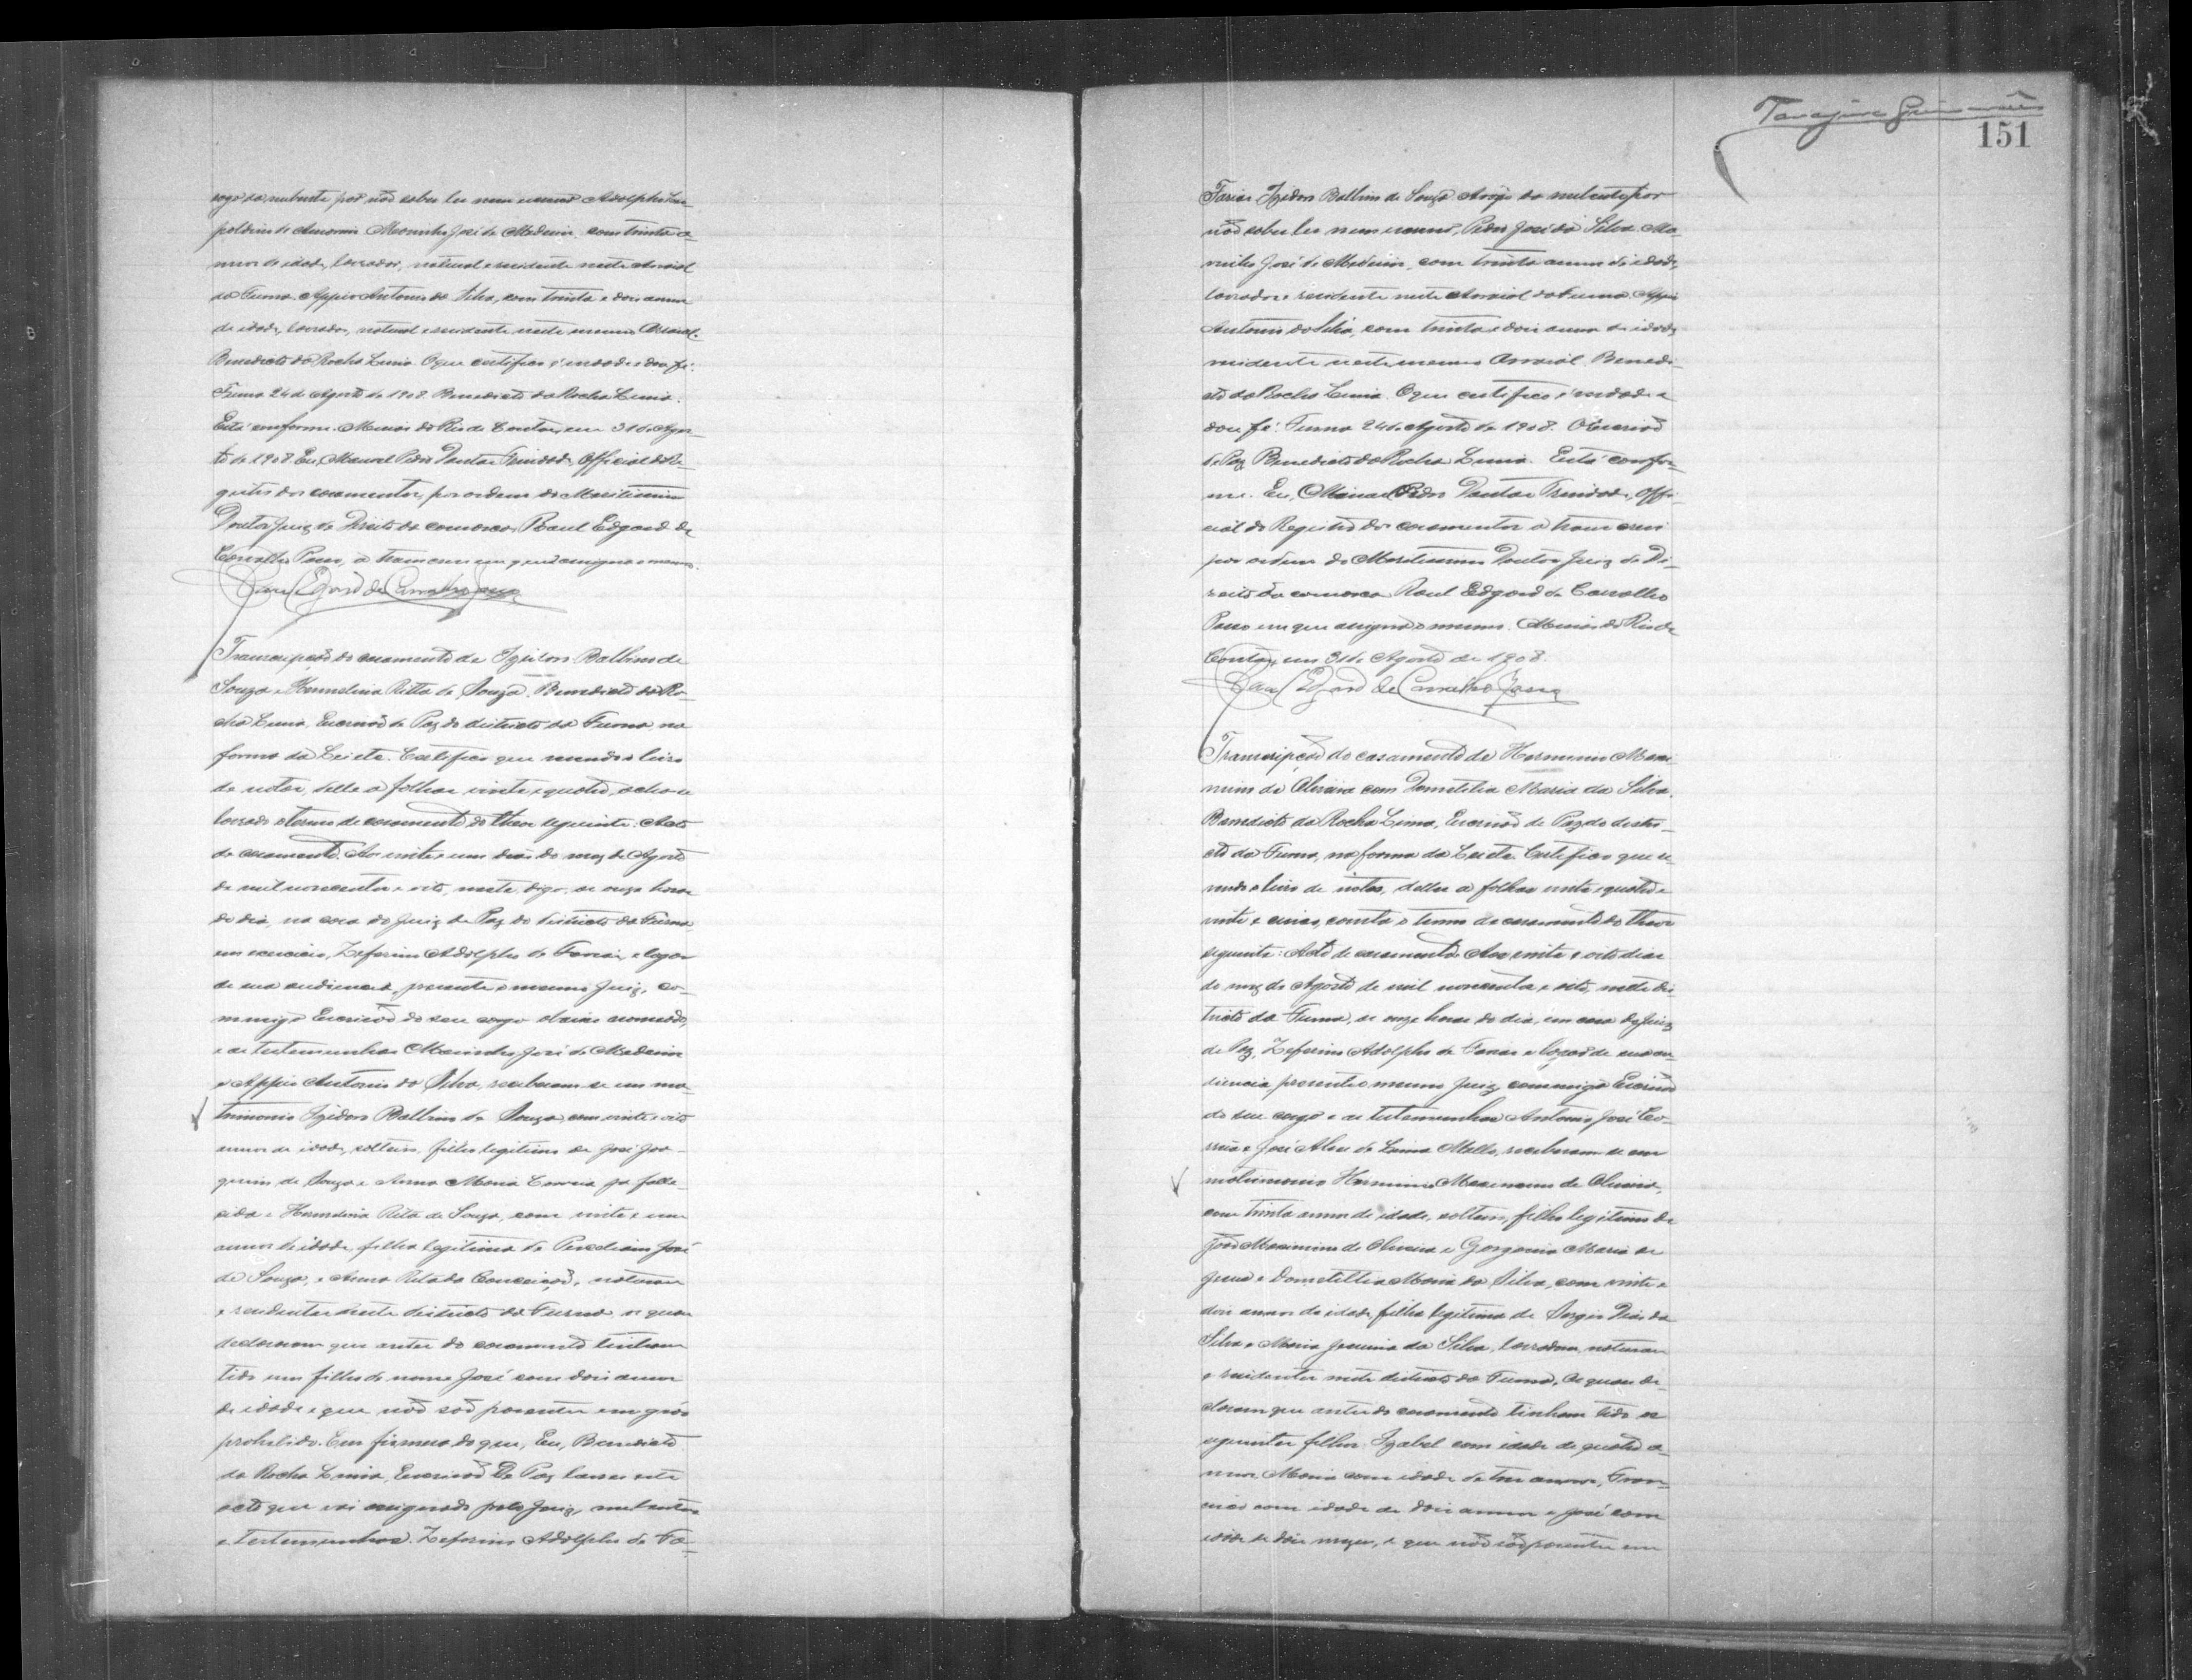 rogo da nubente por não saber ler nem escrever Adolpho Leo-
poldino de Amorim Marinho José de Medeiros, com trinta a-
nnos de idade, lavrador, natural e residente neste Arraial
da Furna. Appio Antonio da Silva, com trinta e dois annos
de idade, lavrador, natural e residente neste mesmo Arraial.
Benedicto da Rocha Lima. O que certifico é verdade e dou fé.
Furna 24 de Agosto de 1908. Benedicto da Rocha Lima.
Está conforme. Minas do Rio de Contas, em 31 de Agos-
to de 1908. Eu, Manoel Pedro Dantas Trindade, Official do Re-
gistro dos casamentos, por ordem do Meritissimo
Doutor Juiz de Direito da comarca, Raul Edgard de
Carvalho Passo, a transcrevi em que assigna o mesmo.
Raul Edgard de Carvalho Passo
Transcripção do casamento de Izidoro Balbino de
Souza e Hermelina Ritta de Souza. Benedicto da Ro-
cha Lima, Escrivão de Paz do districto da Furna, na
forma da Lei etc. Certifico que revendo o livro
de notas, delle a folhas vinte e quatro, acha-se
lavrado o termo de casamento do theor seguinte: Acto
de casamento. Aos vinte e um dias do mez de Agosto
de mil novecentos e oito, neste digo, as onze horas
do dia, na casa do Juiz de Paz do districto da Furna
em exercicio, Zeferino Adolpho de Farias, e logar
de sua audiencia, presente o mesmo Juiz, co-
mmigo Escrivão do seu cargo abaixo nomeado,
e as testemunhas Marinho José de Medeiros
e Appio Antonio da Silva, receberam-se em ma-
trimonio Izidoro Balbino de Souza, com vinte e oito
annos de idade, solteiro, filho legitimo de José Joa-
quim de Souza e Anna Maria Correia já falle-
cida e Hermelina Rita de Souza, com vinte e um
annos de idade, filha legitima de José
de Souza, e Anna Rita da Conceição, naturaes
e residentes neste districto da Furna os quaes
declararam que antes do casamento tinham
tido um filho de nome José com dois annos
de idade e que não são parentes em gráo
prohibido. Em firmeza do que, Eu, Benedicto
da Rocha Lima, Escrivão de Paz lavrei este
acto que vai assignado pelo Juiz, nubentes
e testemunhas. Zeferino Adolpho de Fa-
151
Farias. Izidoro Balbino de Souza. Arogo da nubente por
não saber ler nem escrever, Pedro José da Silva. Ma-
rinho José de Medeiros, com trinta annos de idade,
lavrador e residente neste Arraial da Furna. Appio
Antonio da Silva, com trinta e dois annos de idade,
residente neste mesmo Arraial. Benedi-
cto da Rocha Lima. O que certifico é verdade e
dou fé. Furna 24 de Agosto de 1908. O Escrivão
de Paz Benedicto da Rocha Lima. Está confor-
me. Eu, Manoel Pedro Dantas Trindade, Offi-
cial do Registro dos casamentos a transcrevi
por ordem do Meritissimo Doutor Juiz de Di-
reito da comarca Raul Edgard de Carvalho
Passo em que assigna o mesmo. Minas do Rio de
Contas, em 31 de Agosto de 1908.
Raul Edgard de Carvalho Passo
Transcripção do casamento de Hermino Maxi-
mino de Oliveira com Domitilia Maria da Silva.
Benedicto da Rocha Lima, Escrivão de Paz do distri-
cto da Furna, na forma da Lei etc. Certifico que re-
vendo o livro de notas, delles a folhas vinte e quatro e
vinte e cinco, consta o termo de casamento do theor
seguinte: Acto de casamento. Aos vinte e oito dias
do mez de Agosto de mil novecentos e oito, neste dis-
tricto da Furna, as onze horas do dia, em casa do Juiz
de Paz, Zeferino Adolpho de Farias e logar de sua au-
diencia, presente o mesmo Juiz, commigo Escrivão
do seu cargo e as testemunhas Antonio José Co-
rreia e José Alves de Lima Mello, receberam-se em
matrimonio Hermino Maximino de Oliveira,
com trinta annos de idade, solteiro, filho legitimo de
João Maximino de Oliveira e Gorgonia Maria de
Jesus e Domitillia Maria da Silva, com vinte e
dois annos de idade filha legitima de Sergio Dias da
Silva e Maria Joaquina da Silva, lavradores, naturaes
e residentes neste districto da Furna, os quaes de-
claram que antes do casamento tinham tido os
seguintes filhos, Izabel com idade de quatro a-
nnos, Maria com idade de tres annos, Fran-
cisco com idade de dois annos e José com
idade de dois mezes, e que não são parentes em